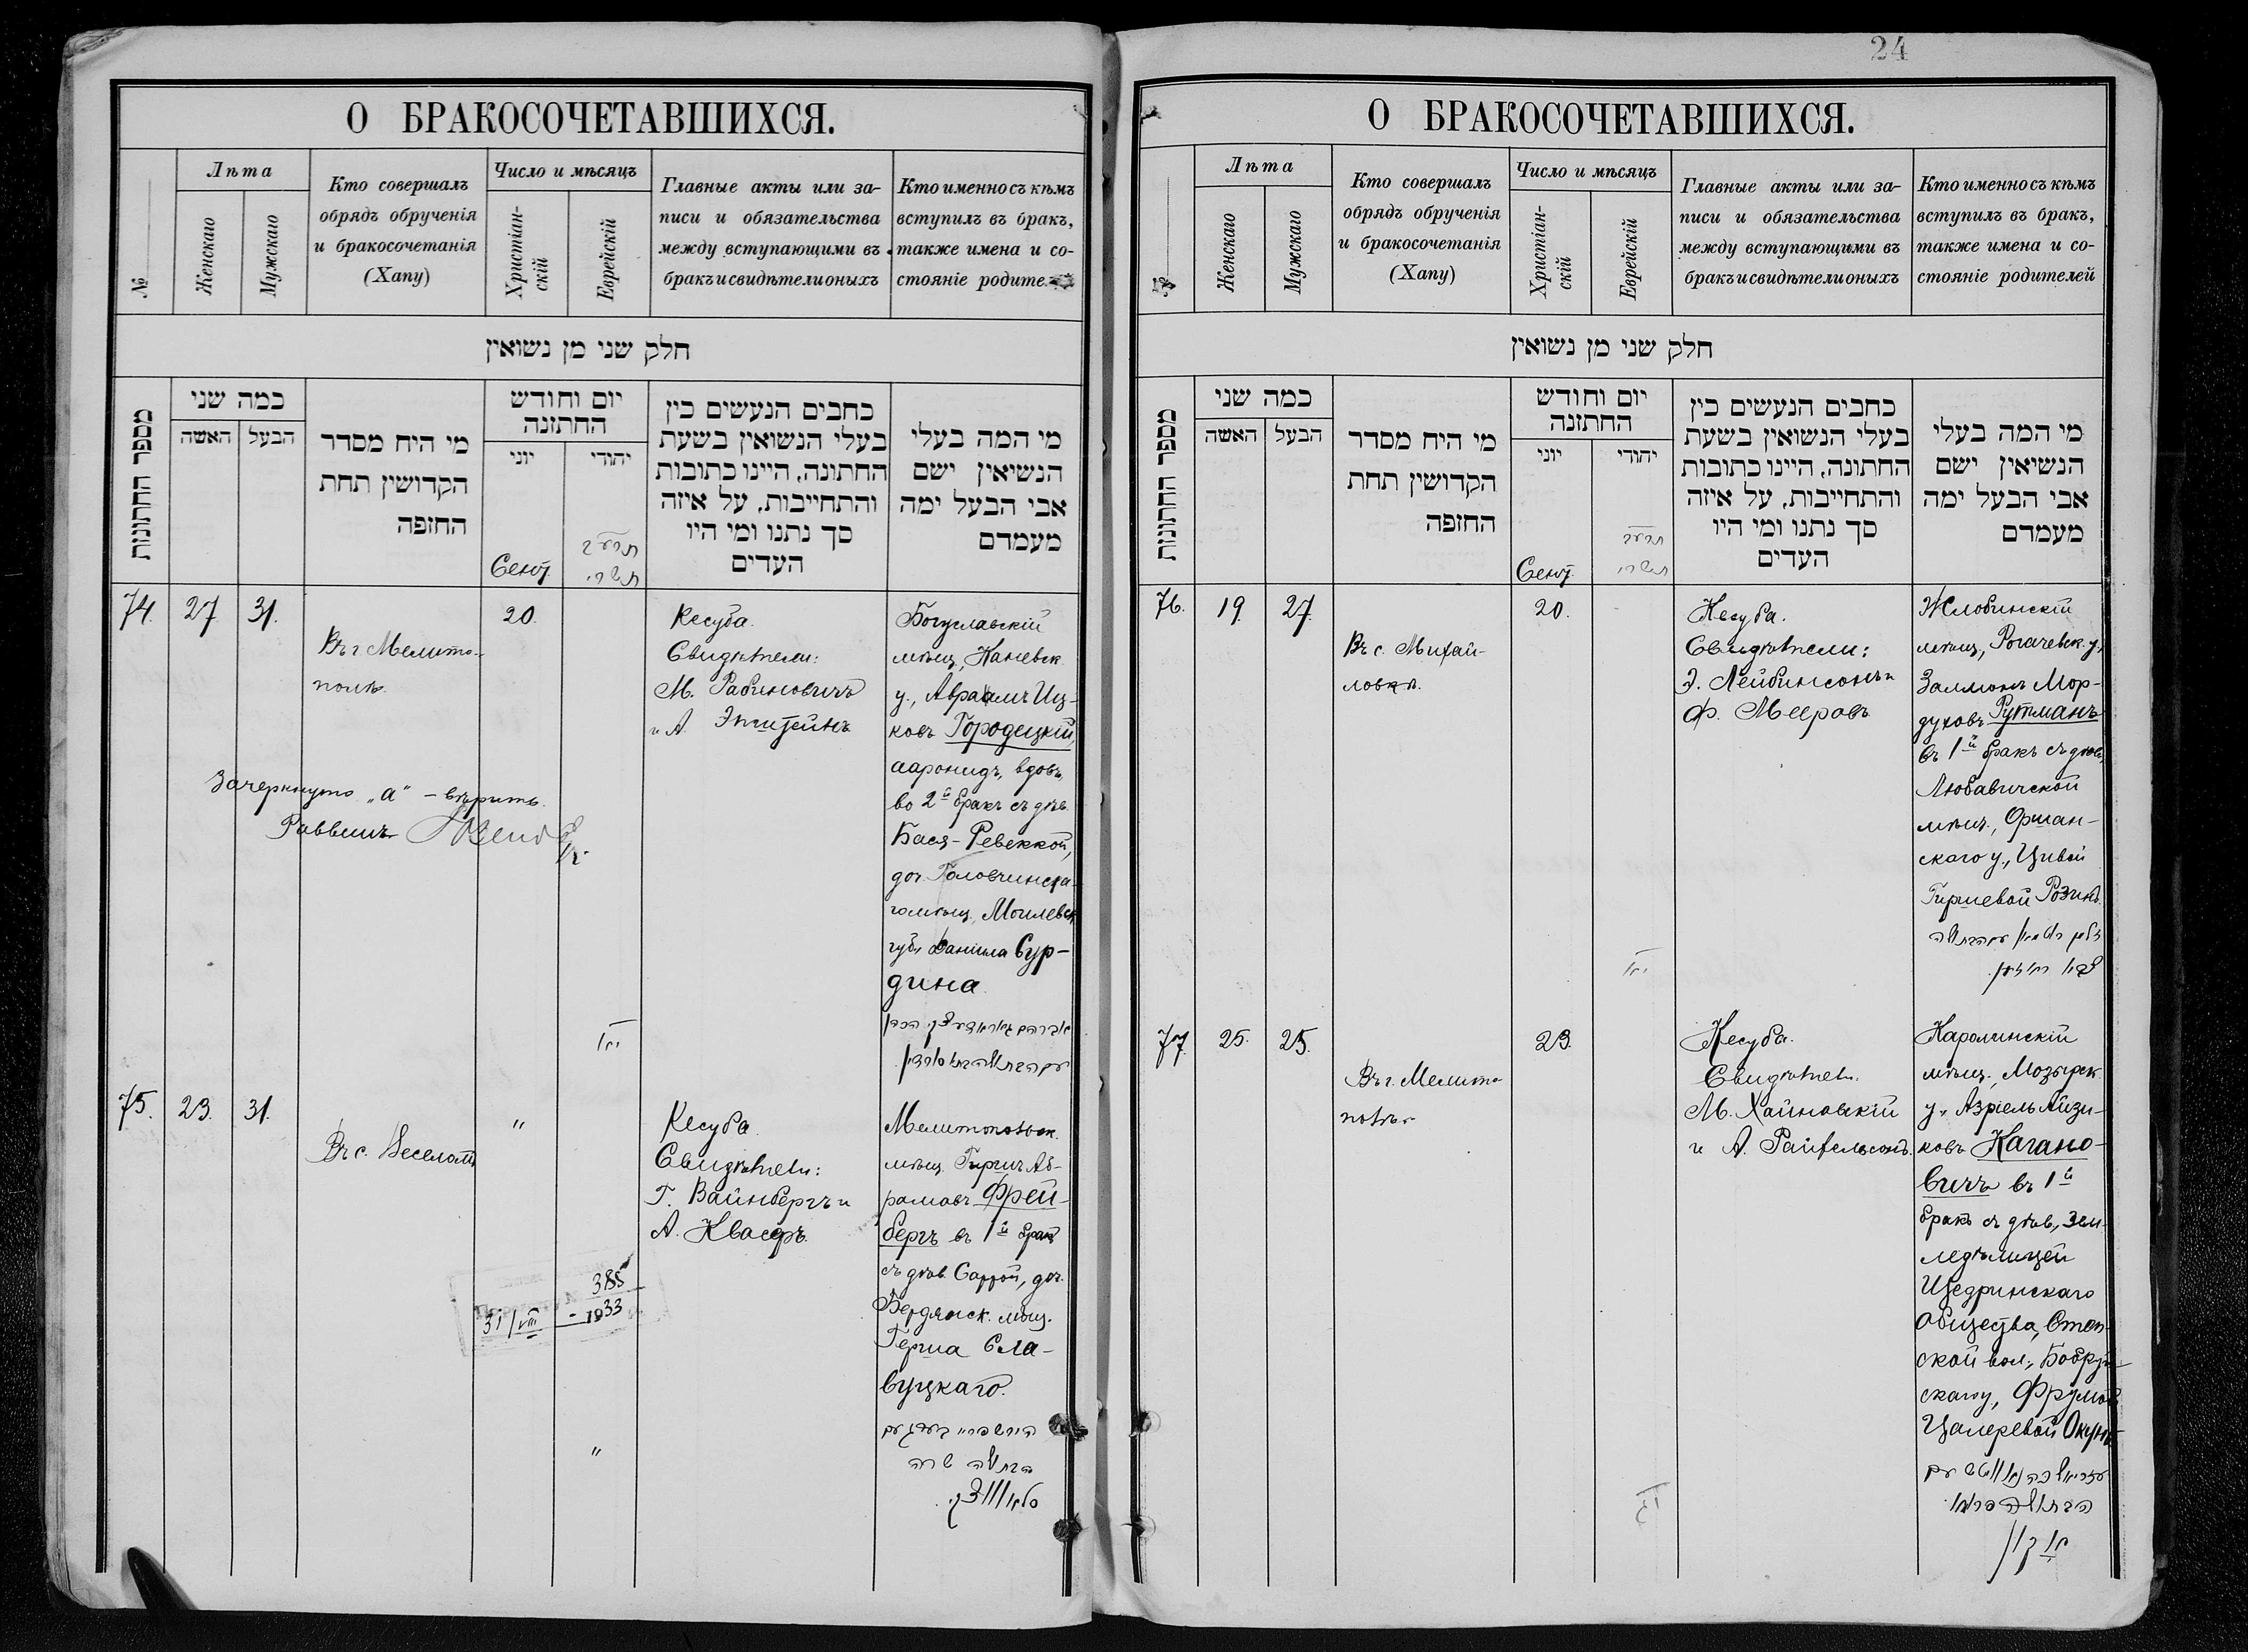 О БРАКОСОЧЕТАВШИХСЯ.
№
Лѣта
Женскаго
Мужскаго
Кто совершалъ
обрядъ обрученія
и бракосочетанія
(Хапу)
Число и мѣсяцъ
Христіан-
скій
Еврейскій
Главные акты или за-
писи и обязательства
между вступающими въ
бракъ и свидѣтели оныхъ
Кто именно съ кѣмъ
вступилъ въ бракъ,
также имена и со-
стояніе родите
חלק שני מן נשואין
מספר החתונות
כמה שני
האשה
הבעל
מי היח מסדר
הקדושין תחת
החופה
יום וחודש
החתונה
יוני
יהודי
Сент.
תרע״ב
תשרי
כתבים הנעשים בין
בעלי הנשואין בשעת
החתונה, היינו כתובות
והתחייבות, על איזה
סך נתנו ומי היו
העדים
מי המה בעלי
הנשיאין ישם
אבי הבעל ימה
מעמדם
74.
27
31.
Въ г. Мелито-
полѣ.
20.
Кесуба.
Свидѣтели:
М. Рабиновичъ
и А. Эпштейнъ
Богуславскій
мѣщ., Каневск.
у., Авраамъ Иц-
ковъ Городецкій,
ааронидъ, вдовъ,
во 2й бракъ съ дѣв.
Бася-Ревеккой,
доч. Головчинска-
го мѣщ., Могилевск.
губ., Даніила Сур-
дина.
Зачеркнуто „а" – вѣрить.
Раввинъ
75.
23.
31.
Въ с. Веселомъ
"
Кесуба.
Свидѣтели:
Г. Вайнбергъ и
А. Квасъ.
Мелитопольск.
мѣщ. Гиршъ Аб-
рамовъ Фрей-
бергъ въ 1й бракъ
съ дѣв. Саррой, доч.
Бердянск. мѣщ.
Герша Сла-
вуцкаго.
"
385
31/VIII – 1933
24
О БРАКОСОЧЕТАВШИХСЯ.
№
Лѣта
Женскаго
Мужскаго
Кто совершалъ
обрядъ обрученія
и бракосочетанія
(Хапу)
Число и мѣсяцъ
Христіан-
скій
Еврейскій
Главные акты или за-
писи и обязательства
между вступающими въ
бракъ и свидѣтели оныхъ
Кто именно съ кѣмъ
вступилъ въ бракъ,
также имена и со-
стояніе родителей
חלק שני מן נשואין
מספר החתונות
כמה שני
האשה
הבעל
מי היח מסדר
הקדושין תחת
החופה
יום וחודש
החתונה
יוני
יהודי
Сент.
תרע״ב
תשרי
כתבים הנעשים בין
בעלי הנשואין בשעת
החתונה, היינו כתובות
והתחייבות, על איזה
סך נתנו ומי היו
העדים
מי המה בעלי
הנשיאין ישם
אבי הבעל ימה
מעמדם
76.
19.
27.
Въ с. Михай-
ловкѣ.
20.
Кесуба.
Свидѣтели:
Э. Лейбинсонъ и
Ф. Мееровъ
Жлобинскій
мѣщ., Рогачевск. у.,
Залмонъ Мор-
духовъ Рутманъ
въ 1й бракъ съ дѣв.,
Любавичской
мѣщ., Оршан-
скаго у., Цивой
Гиршевой Розинъ.
77.
25.
25.
Въ г. Мелито-
полѣ.
23.
Кесуба.
Свидѣтели.
М. Хайновскій
и А. Райхельсонъ.
Каролинскій
мѣщ., Мозырск.
у., Азріель Айзи-
ковъ Кагано-
вичъ въ 1й
бракъ съ дѣв., зем-
ледѣлицей
Щедринскаго
общества,
ской вол., Бобруй-
скаго у., Фрумой
Цалеревой Окунь